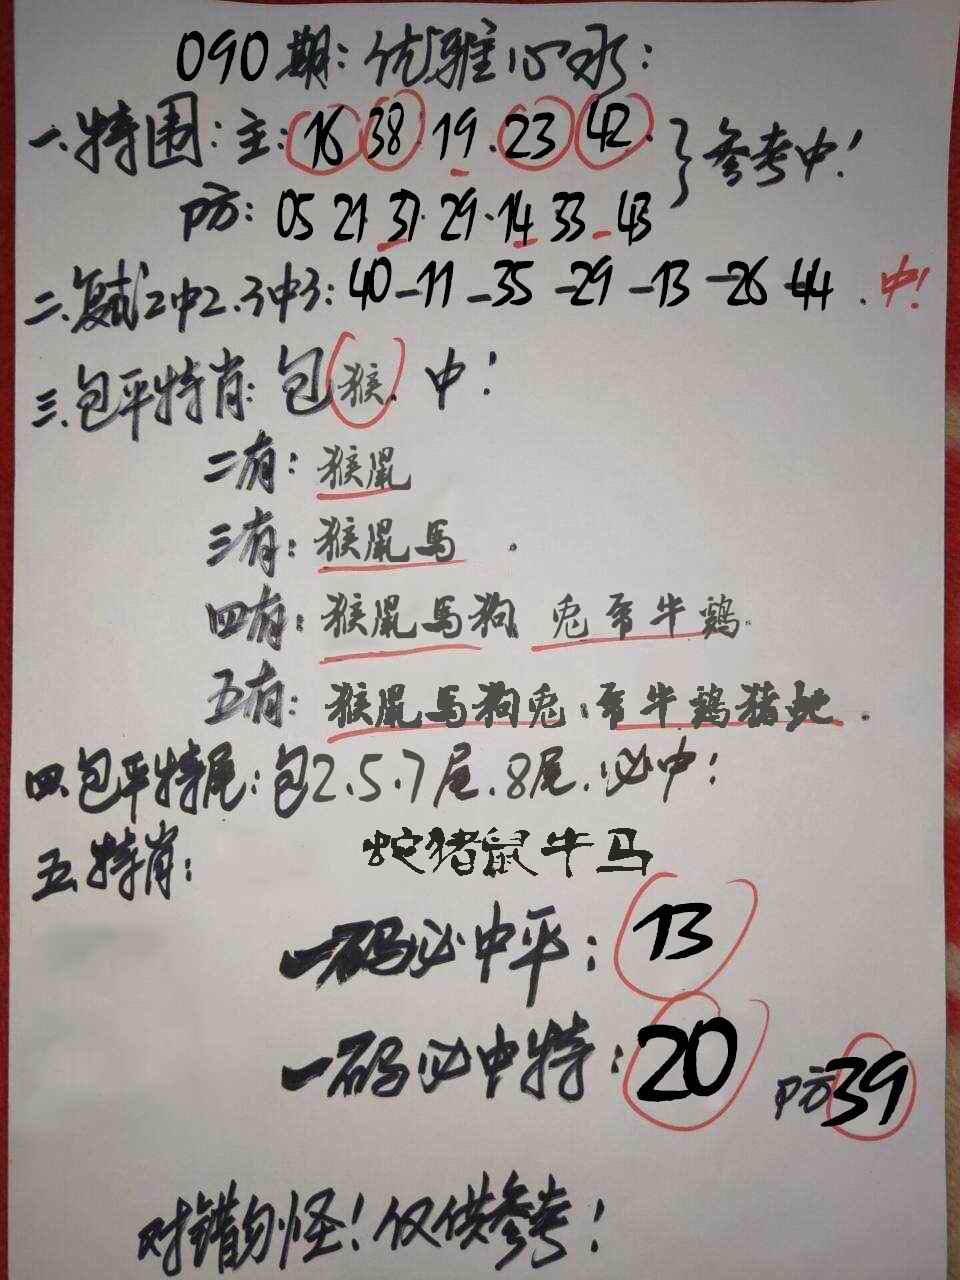 090期:优雅心水:
一.特围:主:16 38 19.23 42.}参考中!
防:05 21 37 29.14 33 43
二.复式2中2.3中3:40-11-35-29-13-26-44.中!
三.包平特肖:包猴.中!
二有:猴鼠
三有:猴鼠馬.
四有:猴鼠馬狗 兔 牛鷄
五有:猴鼠馬狗兔: 牛鷄猪蛇.
四.包平特尾:包2.5.7尾.8尾.必中!
五.特肖:蛇猪鼠牛马
一码必中平:13
一码必中特:20 防39
对错勿怪!仅供参考!